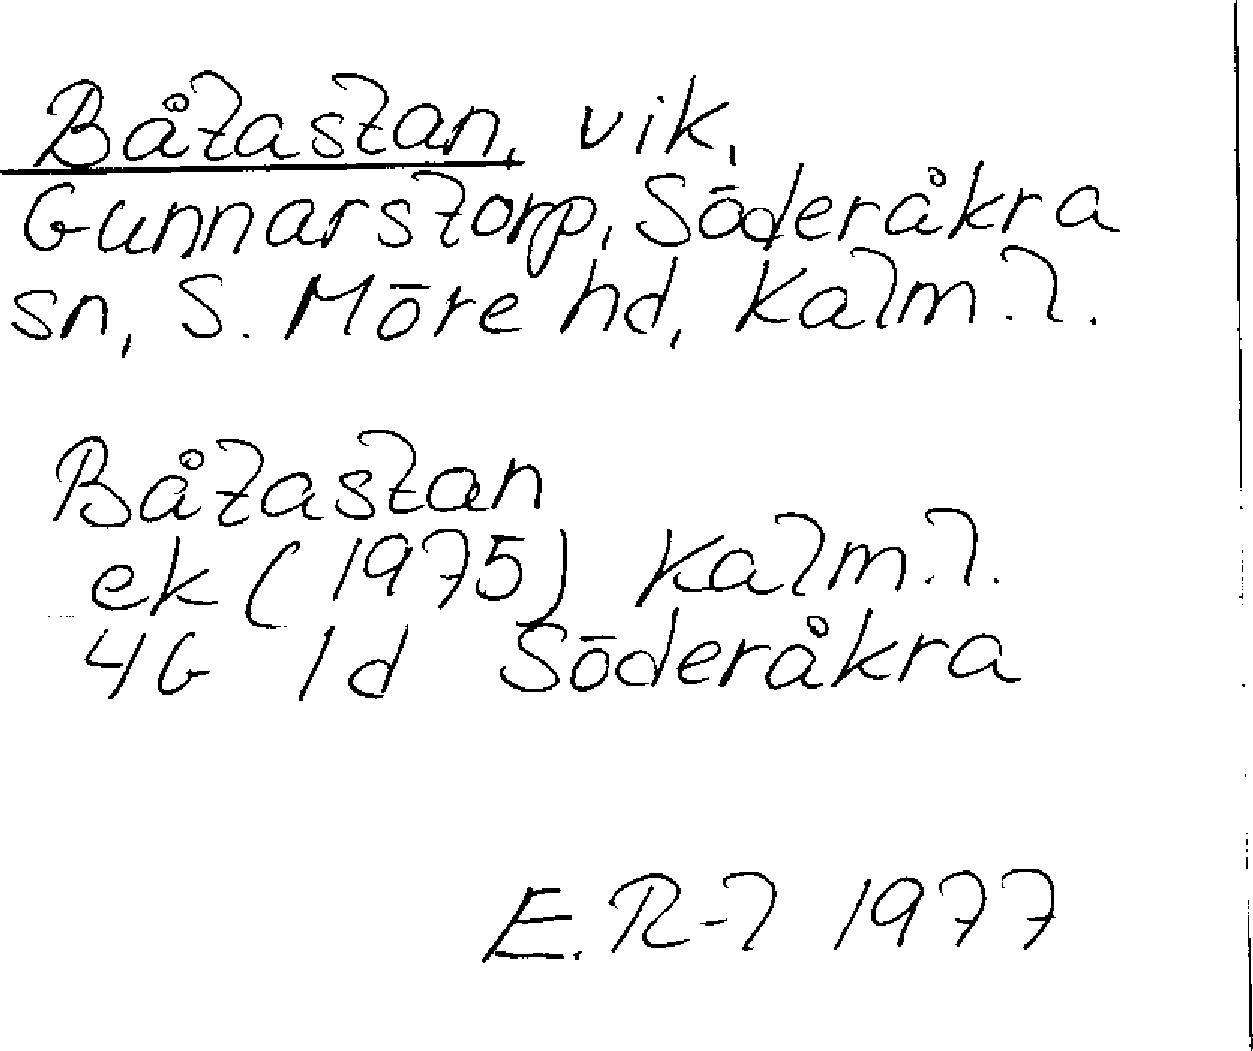 Båtastan, vik,
Gunnarstorp, Söderåkra
sn, S. Möre hd, Kalm. l.
Båtastan
ek (1975) Kalm. l.
4G 1d Söderåkra
E. R-l 1977